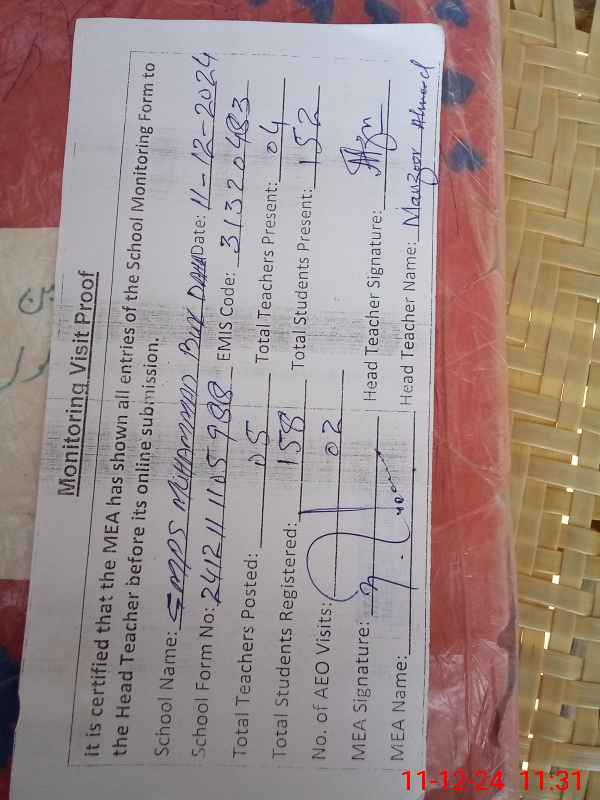 Monitoring Visit Proof
it is certified that the MEA has shown all entries of the School Monitoring Form to
the Head Teacher before its online submission.
School Name: GMPS MUHAMMAD BUX DAHA Date: 11-12-2024
School Form No: 241211105988 EMIS Code: 31320483
Total Teachers Posted: 05 Total Teachers Present: 04
Total Students Registered: 158 Total Students Present: 152
No. of AEO Visits: 02
MEA Signature: Head Teacher Signature:
MEA Name: Head Teacher Name: Manzoor Ahmed
11-12-24 11:31